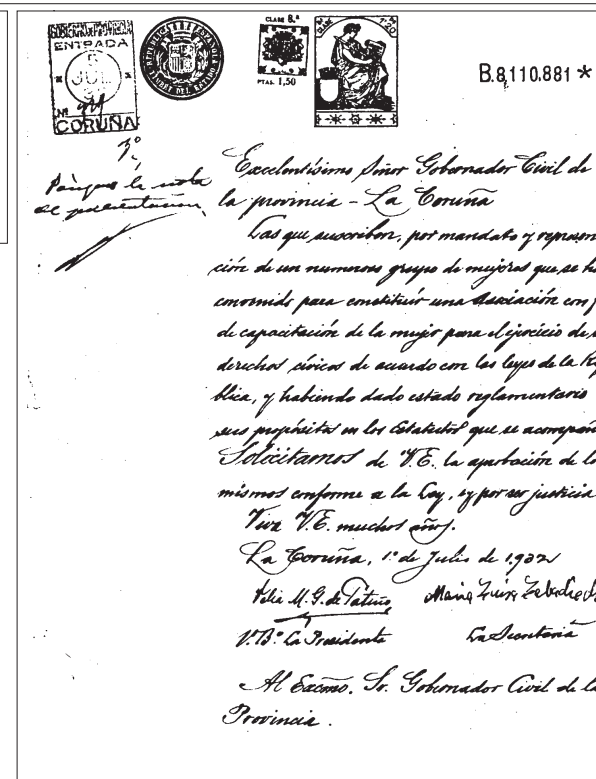 GOBIERNO DE PROVINCIA
ENTRADA
JUL
Nº
CORUÑA
REPUBLICA ESPAÑOLA
TIMBRE DEL ESTADO
CLASE 8.ª
PTAS. 1,50
CLASE 8ª
1'50
B.8,110.881 *
3º
Póngase la nota
de presentación,
Excelentísimo Señor Gobernador Civil de
la provincia - La Coruña
Las que suscriben, por mandato y represen
ción de un numeroso grupo de mujeres que se ha
convenido para constituir una Asociación con f
de capacitación de la mujer para el ejercicio de s
derechos cívicos de acuerdo con las leyes de la Re
blica, y habiendo dado estado reglamentario
sus propósitos en los Estatutos que se acompañ
Solicitamos de V.E. la aprobación de lo
mismos conforme a la Ley, y por ser justicia
Viva V.E. muchos años.
La Coruña, 1º de Julio de 1932
M. G. de María
V.º B.º La Presidenta La Secretaria
Al Excmo. Sr. Gobernador Civil de la
Provincia.